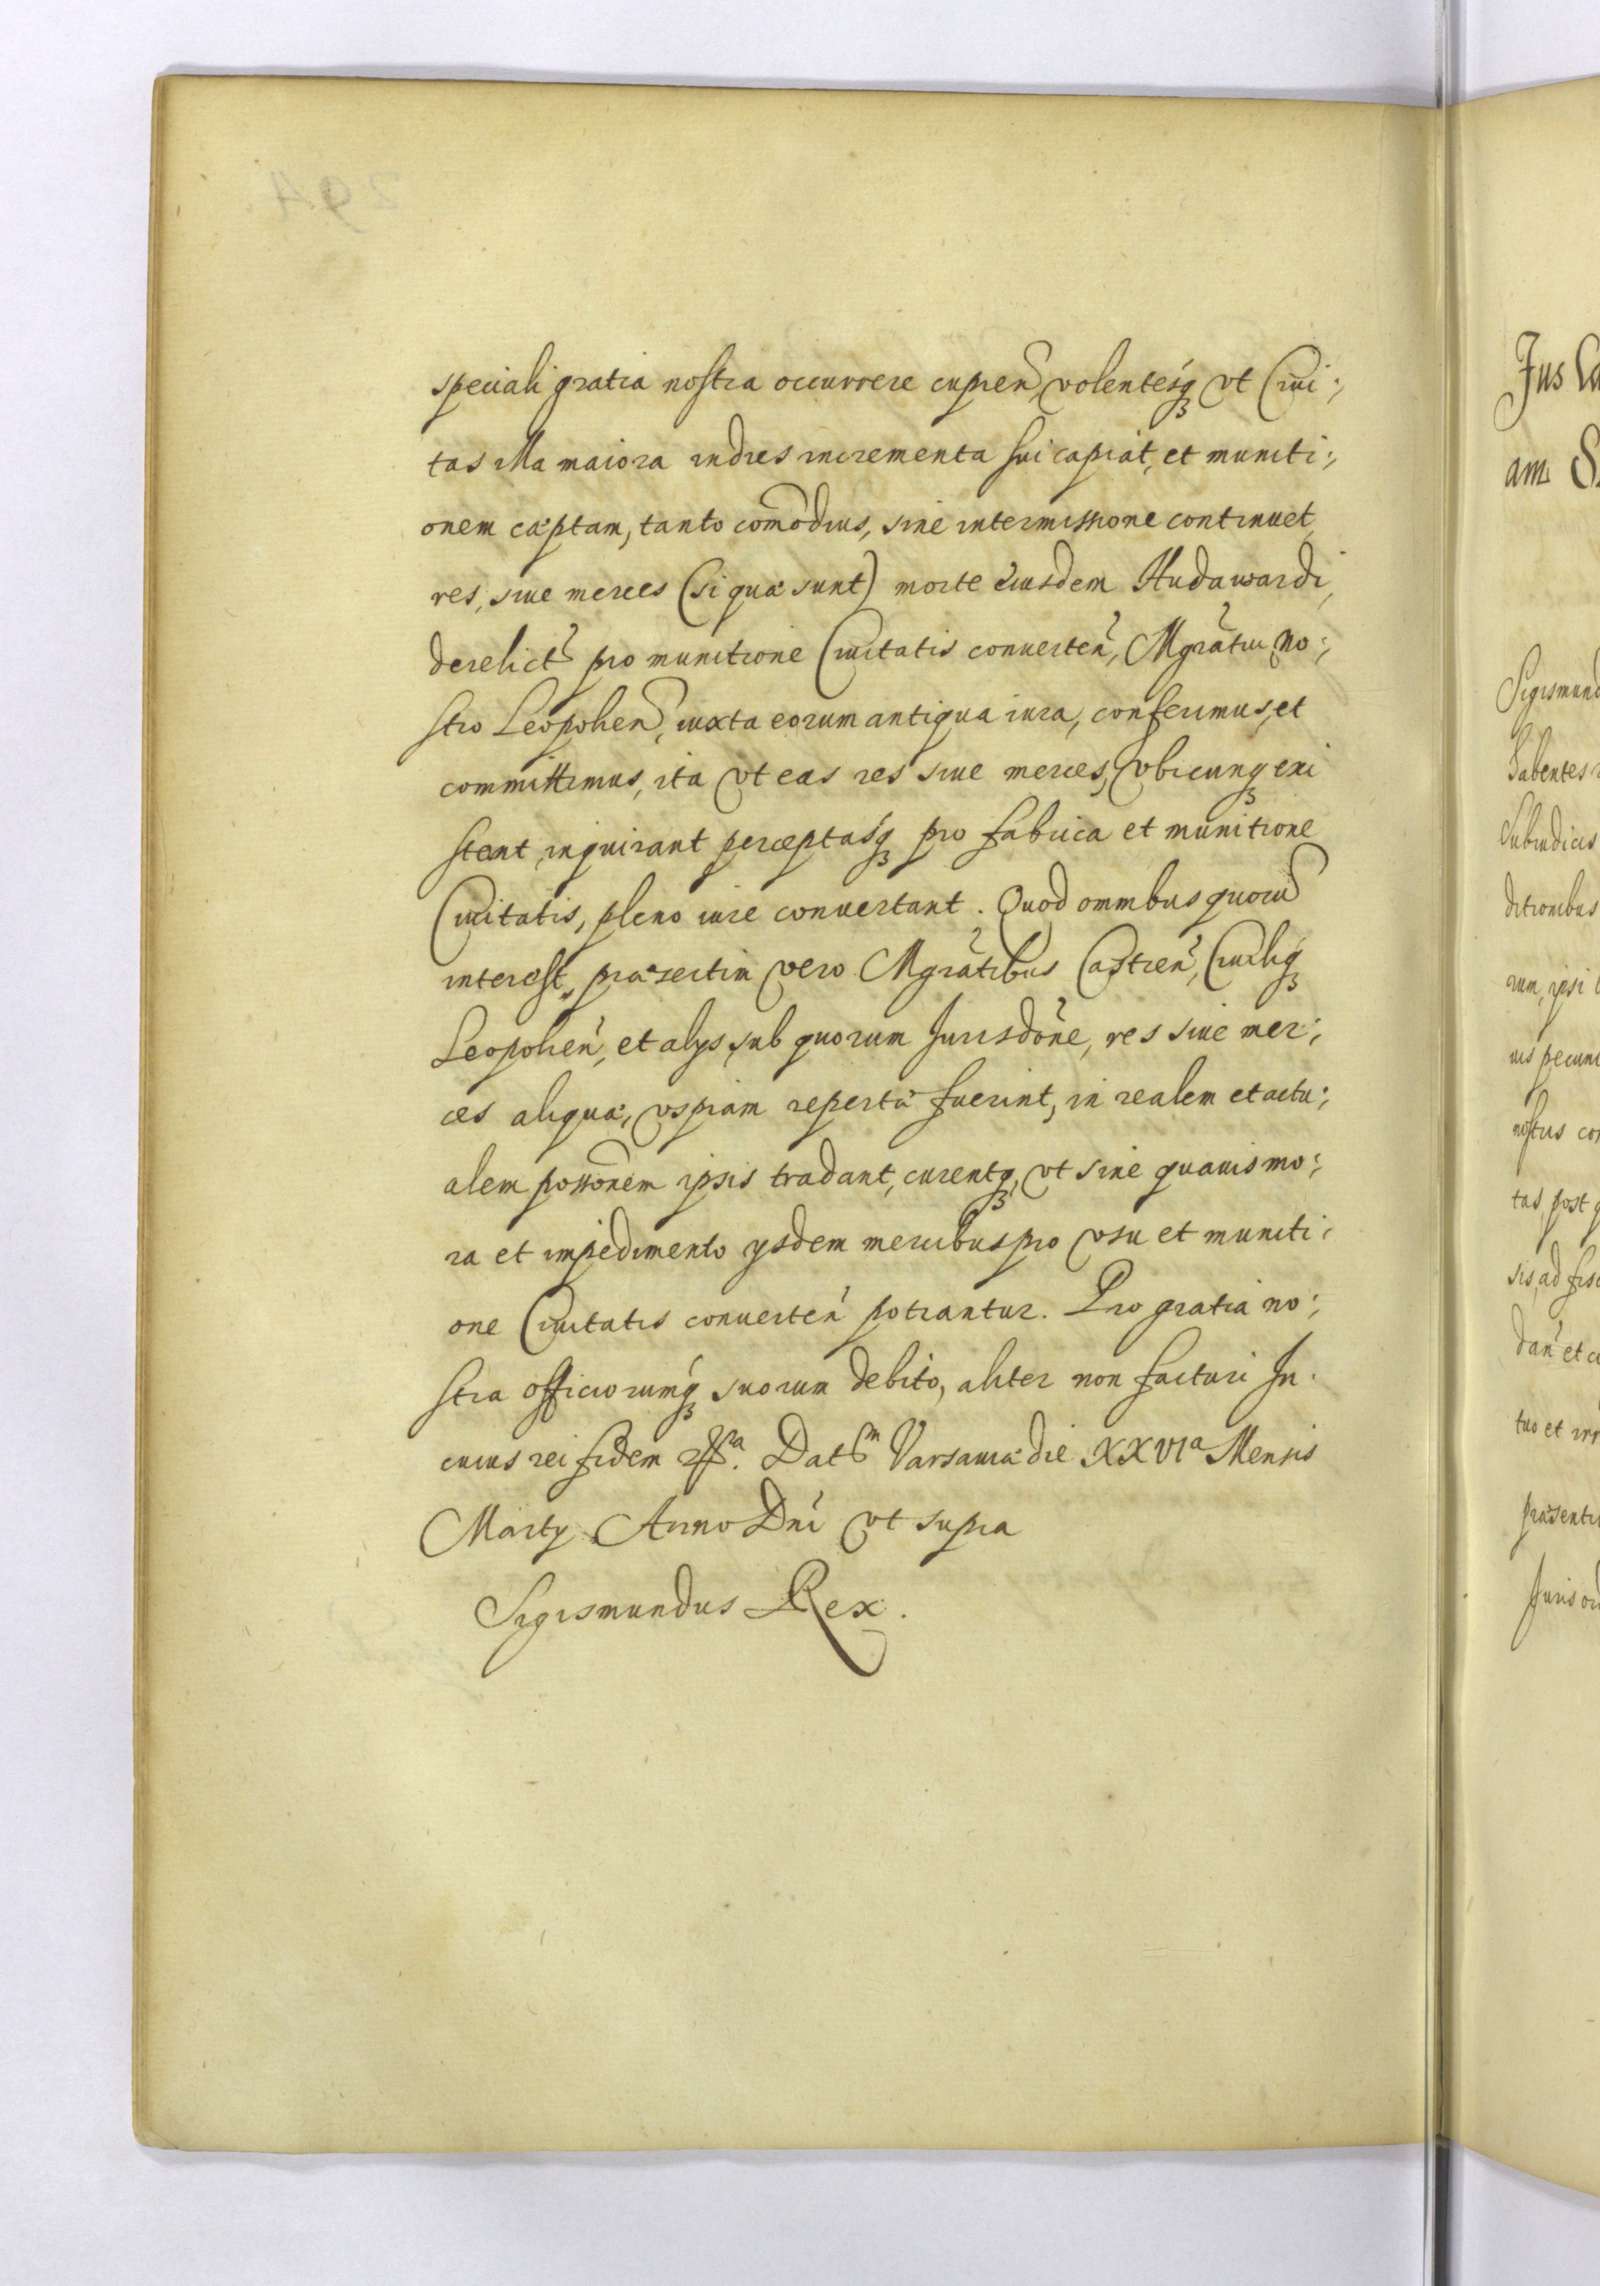 speciali gratia nostra occurrere cupien, volentesq3 vt Ciui:
tas illa maiora indies incrementa sui capiat, et muniti:
onem cæptam, tanto comodius, sine intermissione continuet
res, siue merces (si quæ sunt) morte eiusdem Hudawardi,
derelict pro munitione Ciuitatis conuerten, Mgratui no:
stro Leopolien, iuxta eorum antiqua iura, conferimus, et
committimus, ita vt eas res siue merces, vbicunq3 exi
stant inquirant perceptasq3 pro fabrica et munitione
Ciuitatis, pleno iure conuertant. Quod omnibus quorũ
interest, præsertim vero Mgratibus Castren, Ciuiliq3
Leopolien, et alys sub quorum Jurisdone, res siue mer:
ces aliquæ, vspiam repertæ fuerint, in realem et actu:
alem possonem ipsis tradant, curentq3, vt sine quauis mo:
ra et impedimento ysdem mercibus pro vsu et muniti:
one Ciuitatis conuerten potiantur. Pro gratia no:
stra officiorumq3 suorum debito, aliter non facturi In
cuius rei fidem Dat Varsauiæ die XXVIa Mensis
Marty Anno Dni vt supra
Sigismundus Rex.
Jus
am
Sigismund
habentes
Subiudices
ditionibus
rum, ipsi
uis pecuni
nostris con
tas, post
sis, ad fisc
dan et
tuo et
præsenti
Juris
294